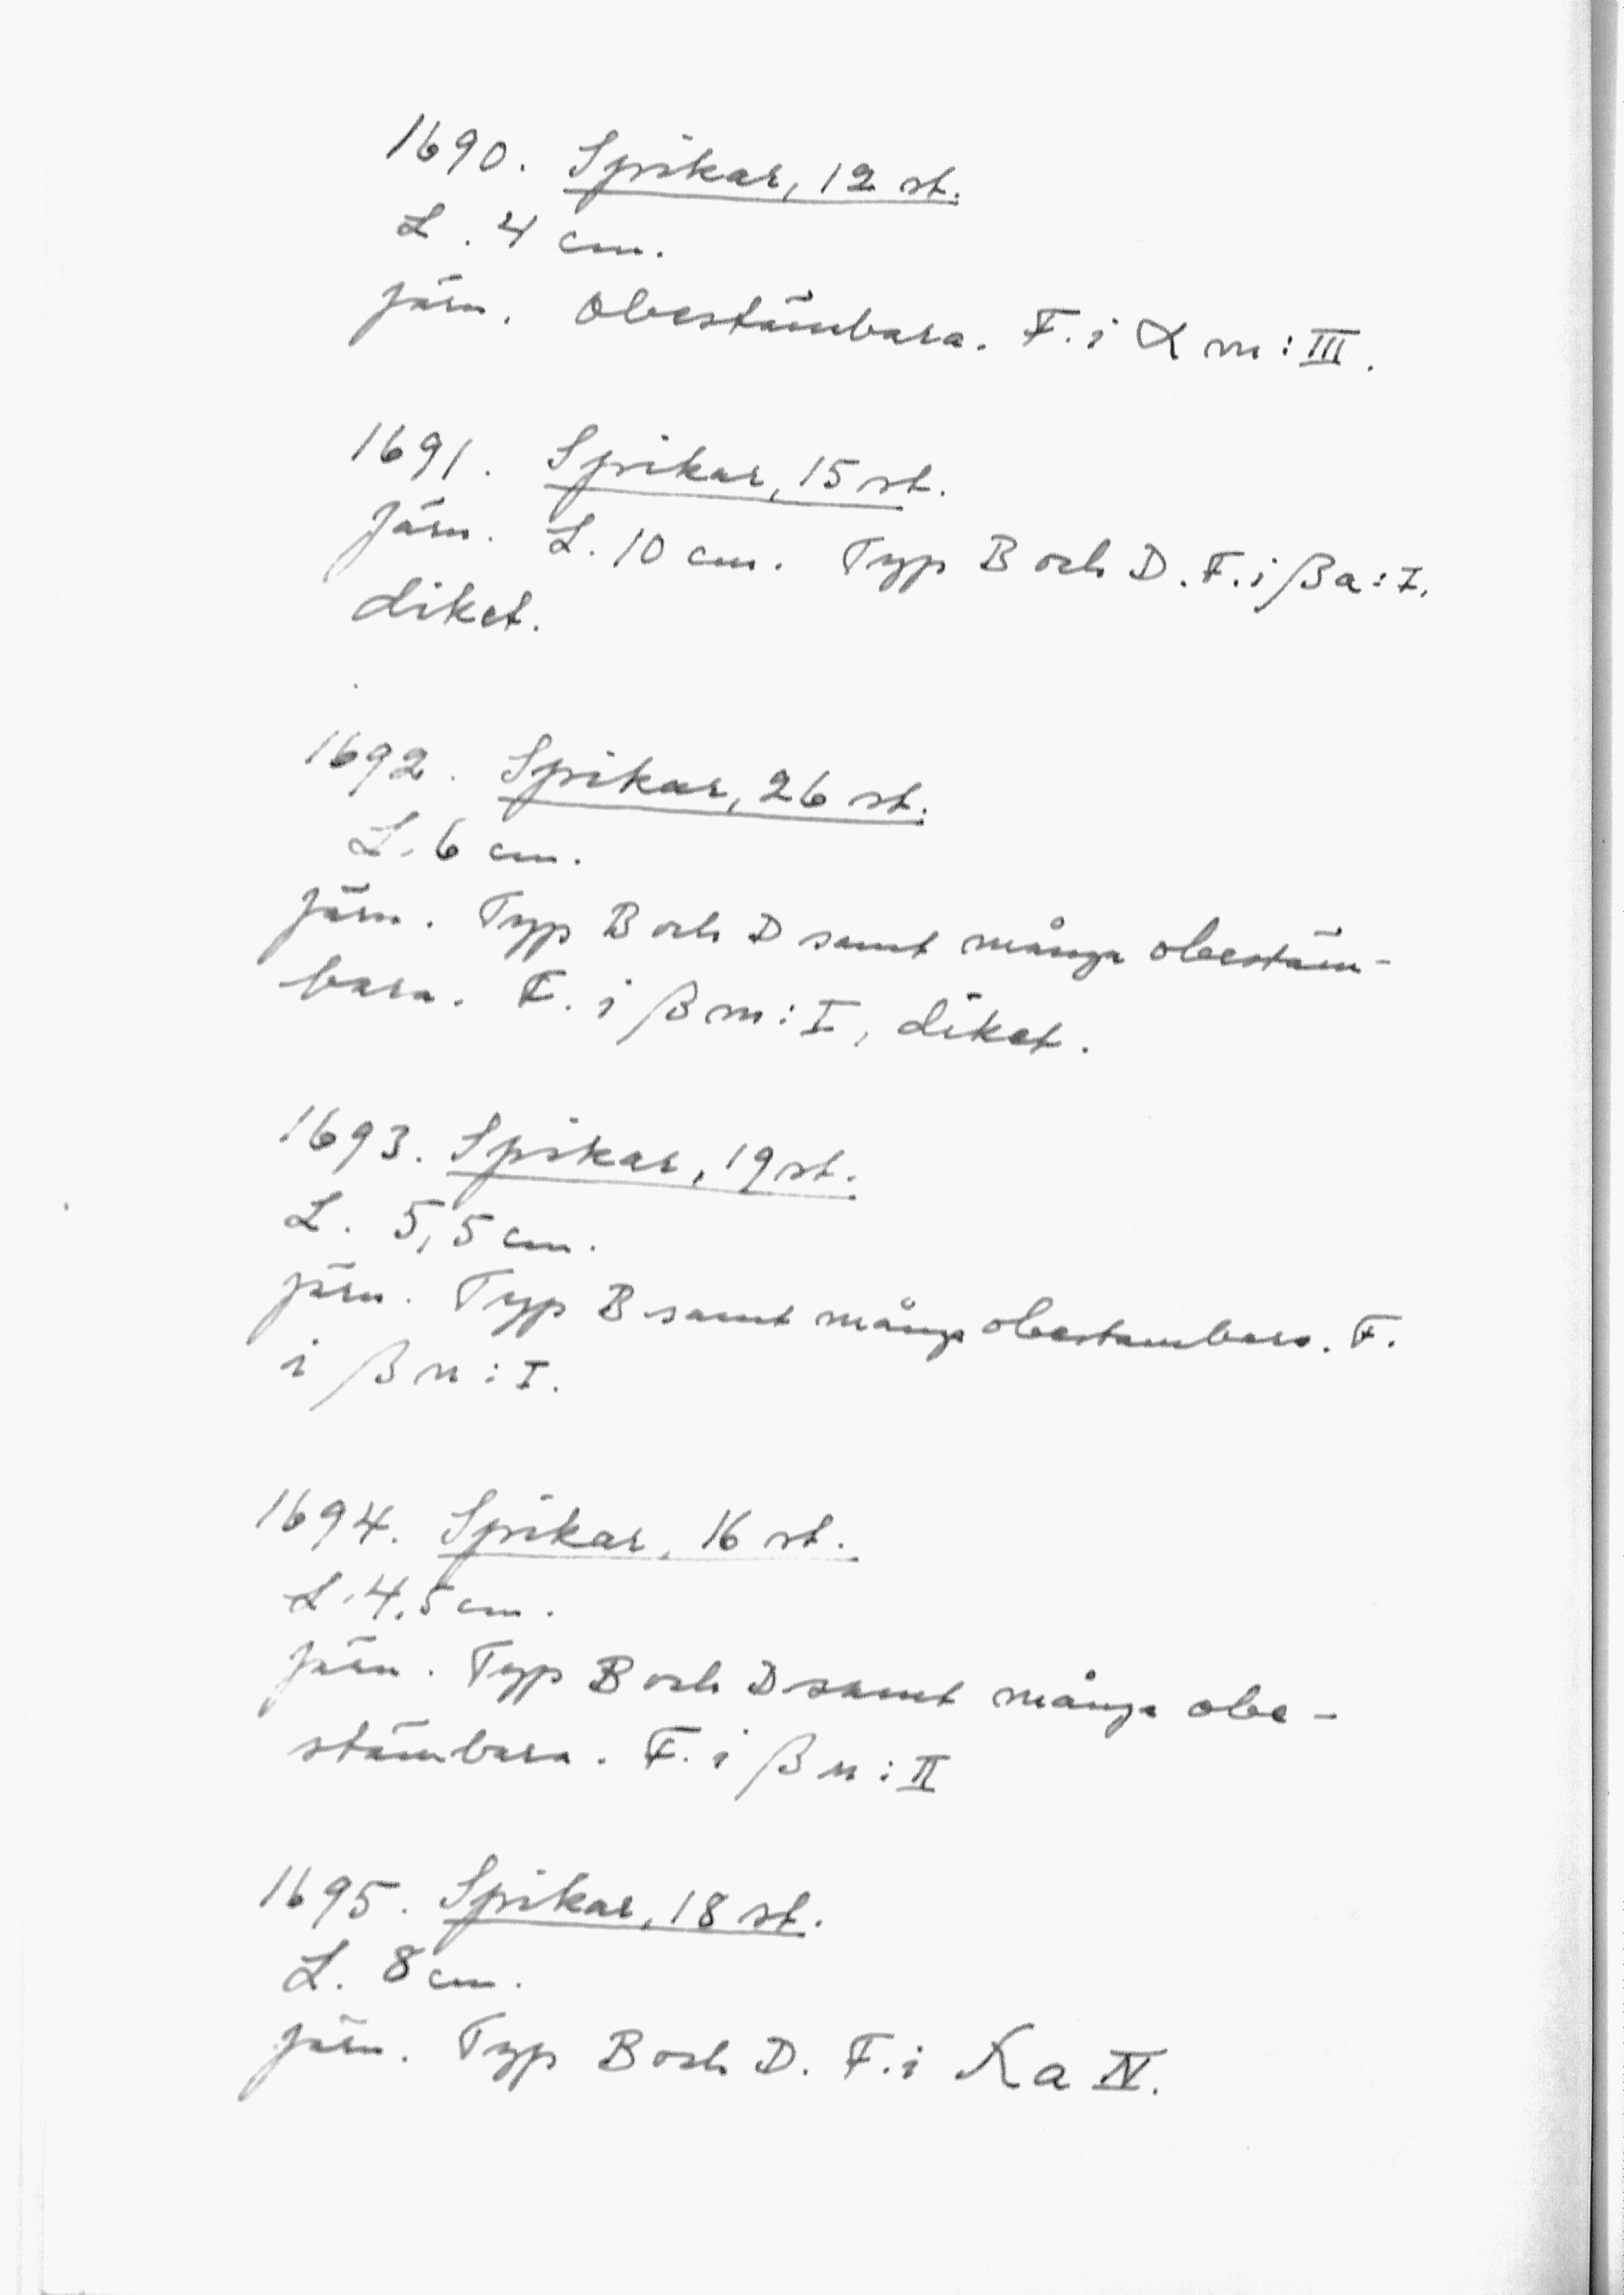 1690. Spikar, 12 st.
L. 4 cm.
Järn. Obestämbara. F. i α m : III.
1691. Spikar, 15 st.
Järn. L. 10 cm. Typ B och D. F. i β a : I,
diket.
1692. Spikar, 26 st.
L. 6 cm.
Järn. Typ B och D samt många obestäm-
bara. F. i β m : I, diket.
1693. Spikar, 19 st.
L. 5,5 cm.
Järn. Typ B samt många obestambara. F.
i β n : I.
1694. Spikar, 16 st.
L. 4,5 cm.
Järn. Typ B och D samt många obe-
stämbara. F. i β n : II
1695. Spikar, 18 st.
L. 8 cm.
Järn. Typ B och D. F. i a IV.